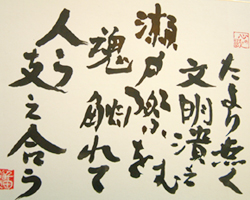 たより無く
文明潰えむ
瀬戸際を
魂触れて
人ら支え合う